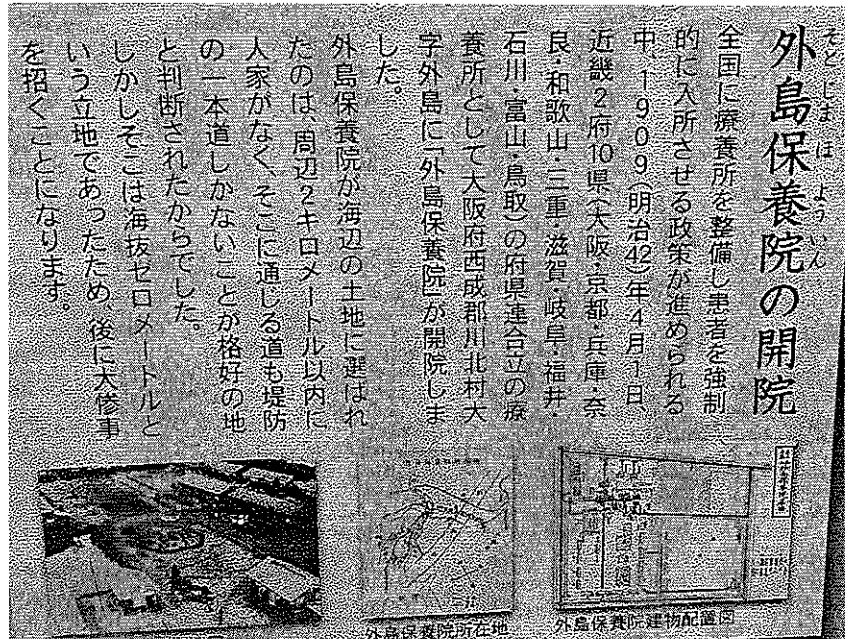 そとじまほよういん
外島保養院の開院
全国に療養所を整備し患者を強制
的に入所させる政策が進められる
中、1909(明治42)年4月1日、
近畿2府10県(大阪・京都・兵庫・奈
良・和歌山・三重・滋賀・岐阜・福井・
石川・富山・鳥取)の府県連合立の療
養所として大阪府西成郡川北村大
字外島に「外島保養院」が開院しま
した。
外島保養院が海辺の土地に選ばれ
たのは、周辺2キロメートル以内に
人家がなく、そこに通じる道も堤防
の一本道しかないことが格好の地
と判断されたからでした。
しかしそこは海抜ゼロメートルと
いう立地であったため、後に大惨事
を招くことになります。
外島保養院所在地
外島保養院建物配置図